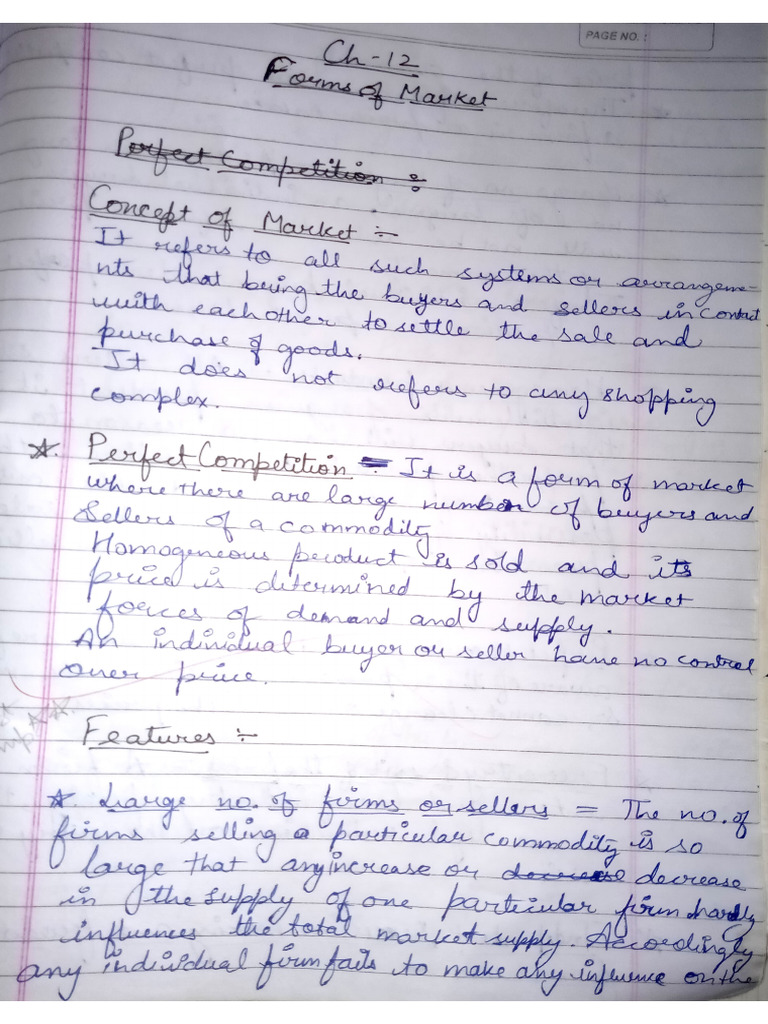 PAGE NO. :
Ch-12
Forms of Market
Perfect Competition :-
Concept of Market :-
It refers to all such systems or arrangeme-
nts that being the buyers and sellers in contact
with each other to settle the sale and
purchase of goods.
It does not refers to any shopping
complex.
* Perfect Competition = It is a form of market
where there are large number of buyers and
Sellers of a commodity
Homogeneous product is sold and its
price is determined by the market
forces of demand and supply.
An individual buyer or seller have no control
over price.
Features :-
* Large no. of firms or sellers = The no. of
firms selling a particular commodity is so
large that any increase or decrease decrease
in the supply of one particular firm hardly
influences the total market supply. Accordingly
any individual firm fails to make any influence on the